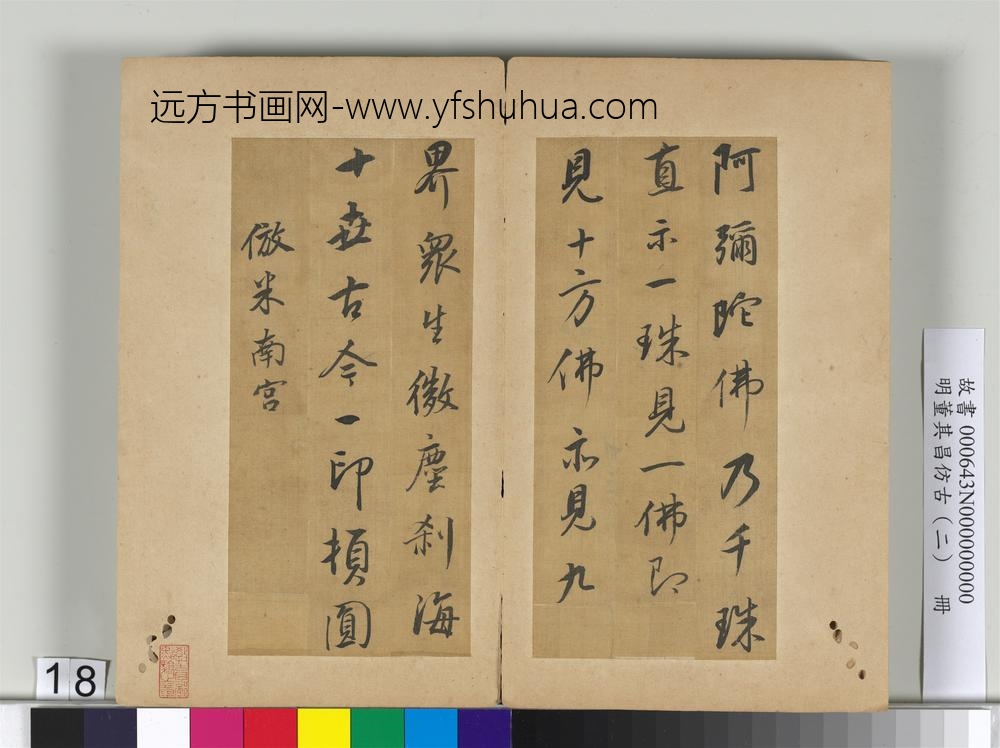 远方书画网-www.yfshuhua.com
阿彌陀佛乃千珠
直示一珠見一佛即
見十方佛亦見九
界眾生微塵刹海
十世古今一印頓圓
倣米南宮
故書 000643N000000000
明董其昌仿古（二） 冊
18